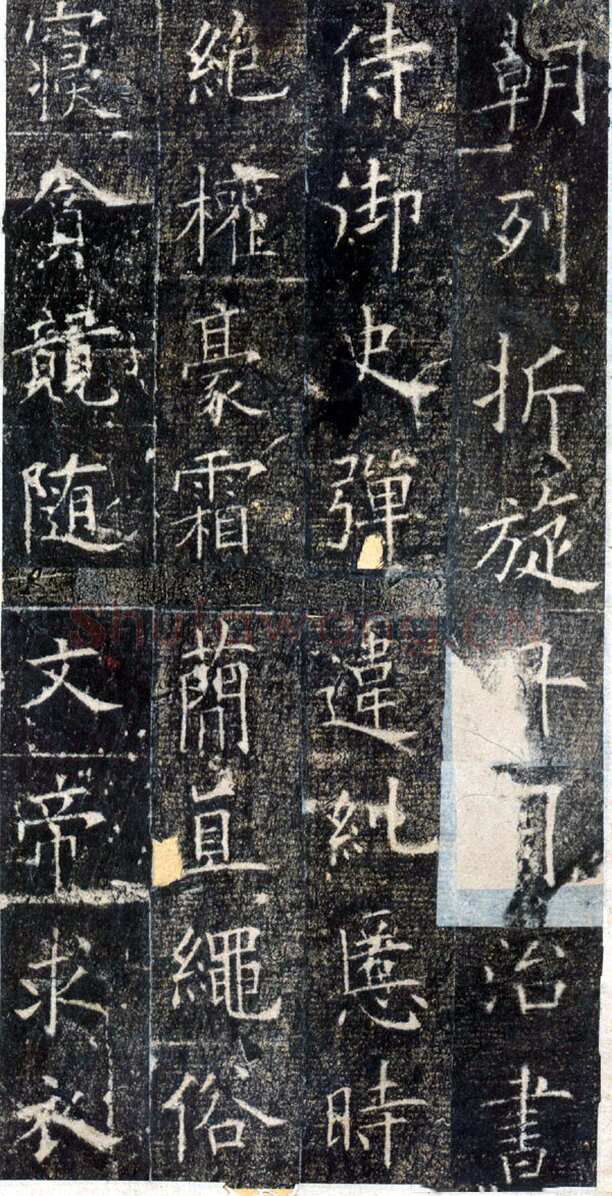 朝列折旋丹⬚治書
侍御史彈違糾慝時
絶權豪霜蕳直繩俗
寑貪競随文帝求衣
Shufawang.CN